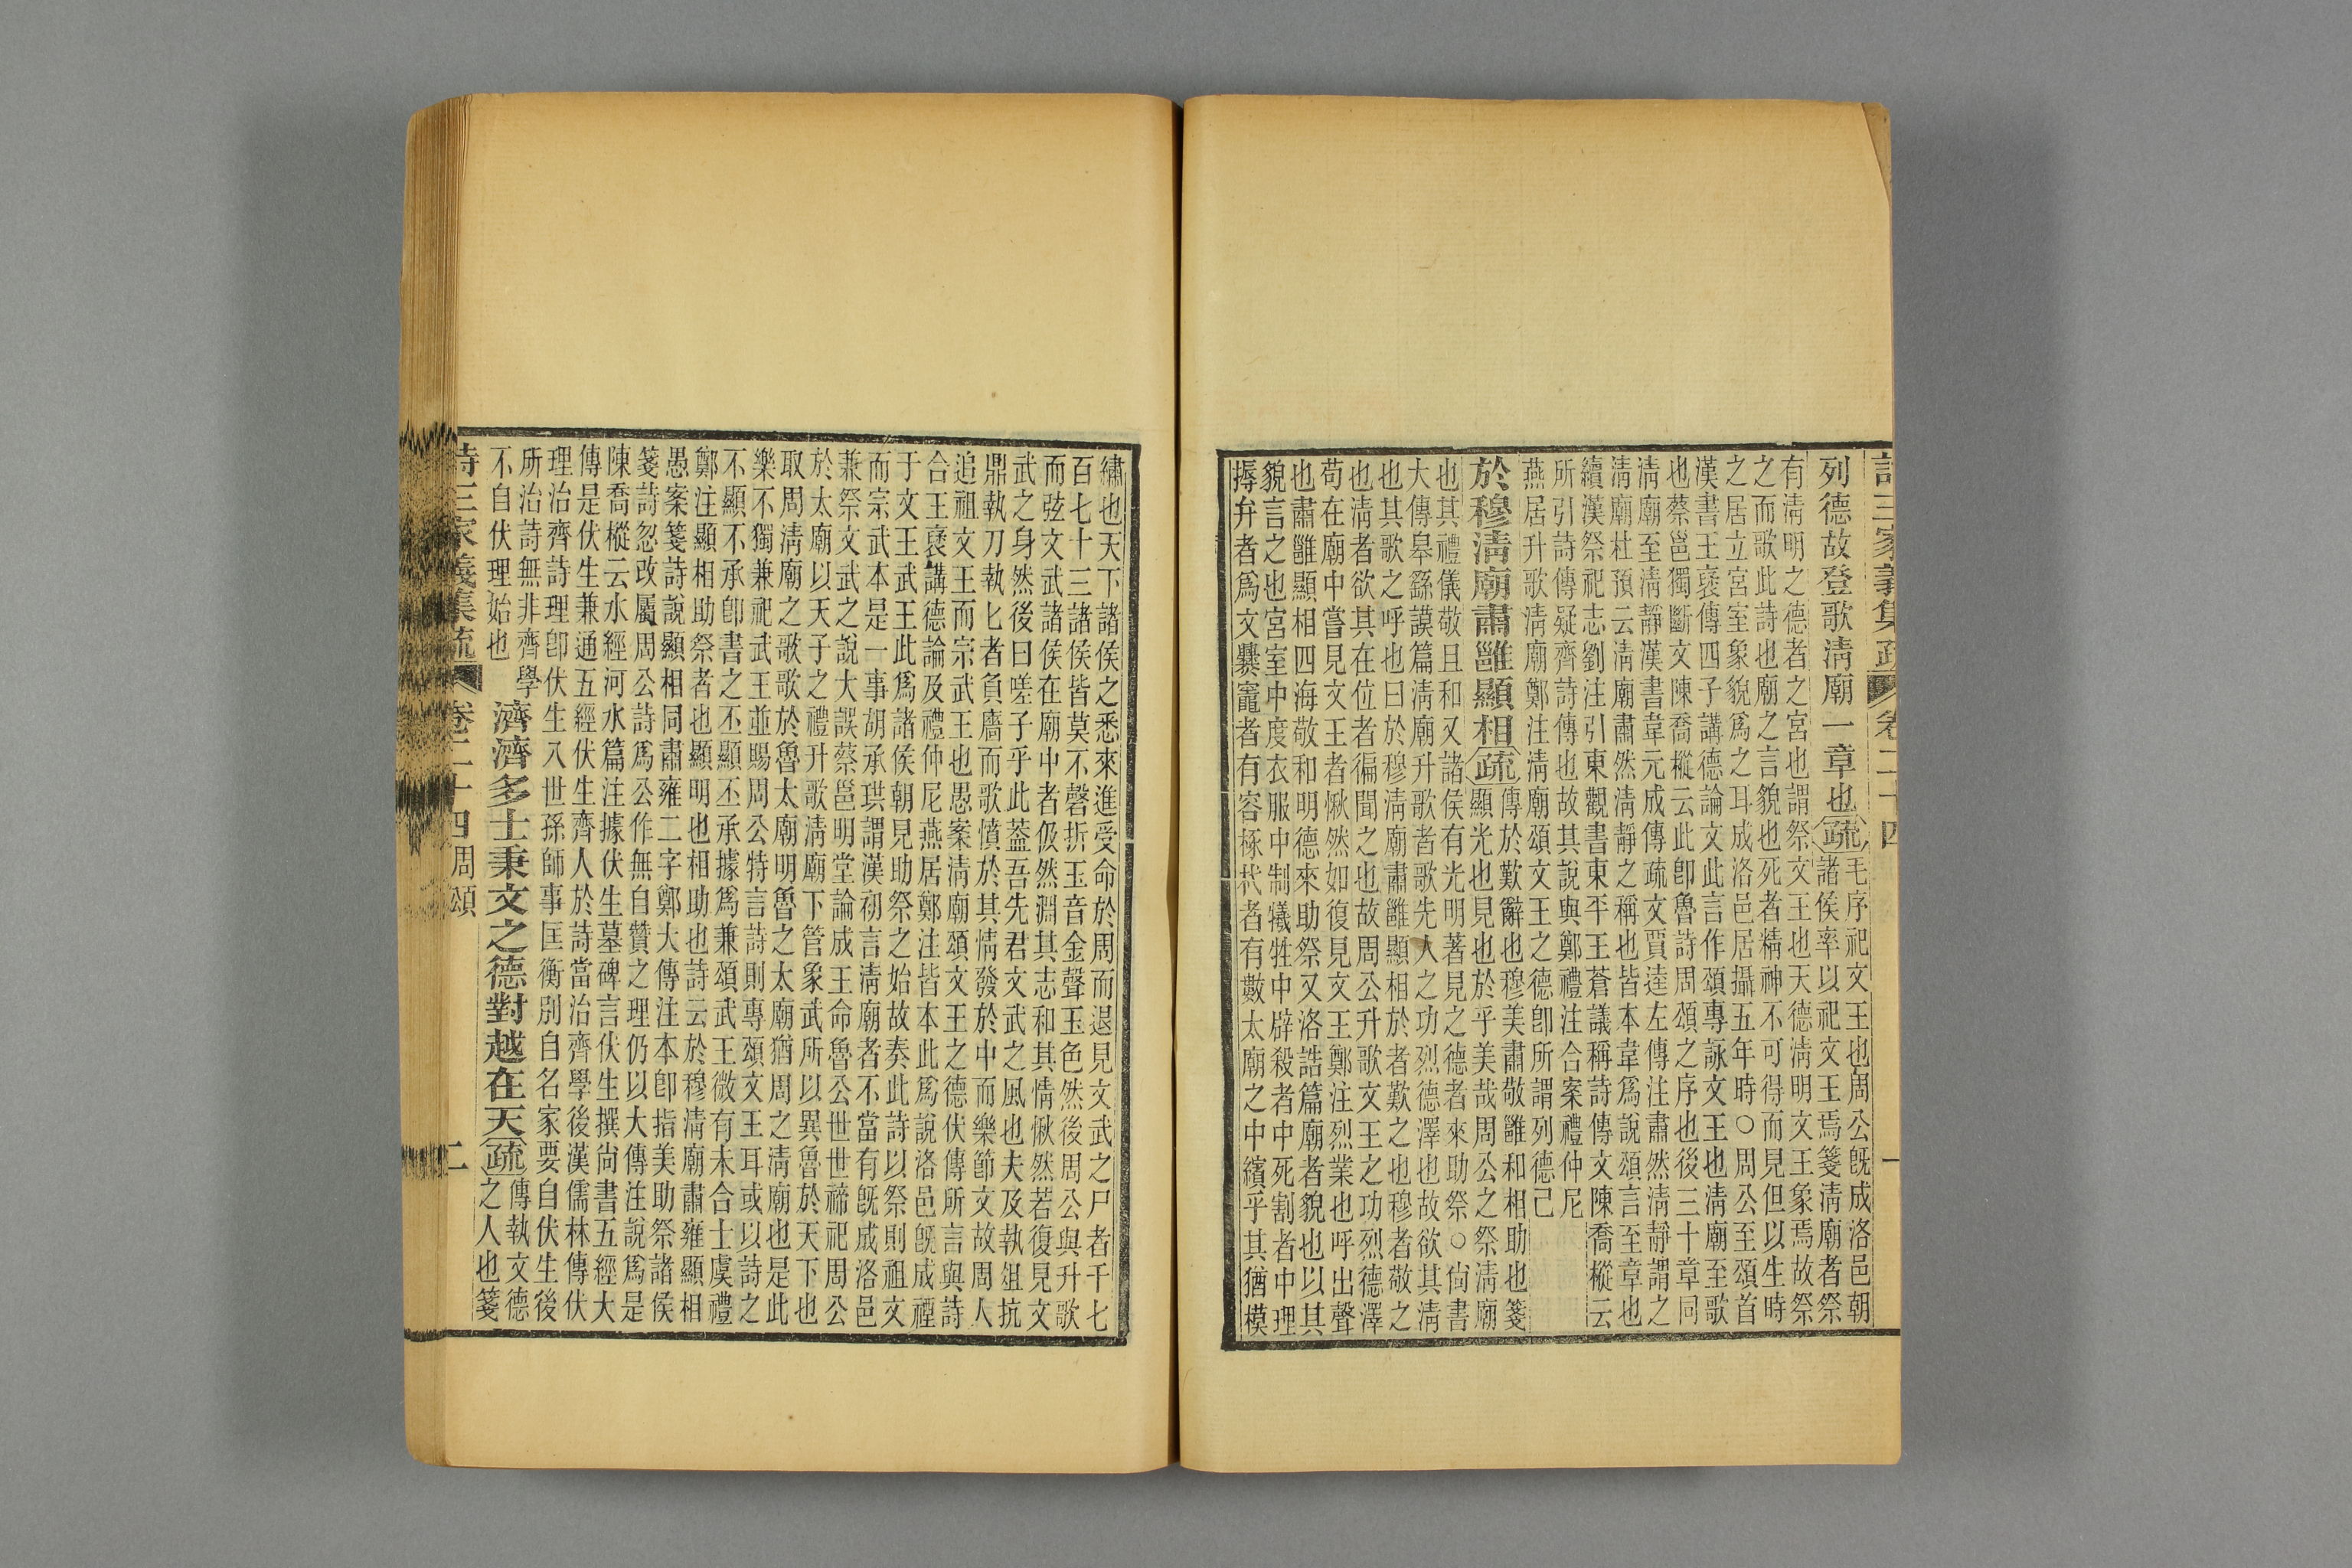 詩三家義集疏 卷二十四 一
列德故登歌清廟一章也疏毛序祀文王也周公旣成洛邑朝
諸侯率以祀文王焉箋清廟者祭
有清明之德者之宮也謂祭文王也天德清明文王象焉故祭
之而歌此詩也廟之言貌也死者精神不可得而見但以生時
之居立宮室象貌爲之耳成洛邑居攝五年時○周公至頌首
漢書王襃傳四子講德論文此言作頌專詠文王也清廟至歌
也蔡邕獨斷文陳喬樅云此卽魯詩周頌之序也後三十章同
清廟至清靜漢書韋元成傳疏文賈逵左傳注肅然清靜謂之
清廟杜預云清廟肅然清靜之稱也皆本韋爲說頌言至章也
續漢祭祀志劉注引東觀書東平王蒼議稱詩傳文陳喬樅云
所引詩傳疑齊詩傳也故其說與鄭禮注合案禮仲尼
燕居升歌清廟鄭注清廟頌文王之德卽所謂列德己
於穆清廟肅雝顯相疏傳於歎辭也穆美肅敬雝和相助也箋
顯光也見也於乎美哉周公之祭清廟
也其禮儀敬且和又諸侯有光明著見之德者來助祭○尙書
大傳皋繇謨篇清廟升歌者歌先人之功烈德澤也故欲其清
也其歌之呼也曰於穆清廟肅雝顯相於者歎之也穆者敬之
也清者欲其在位者徧聞之也故周公升歌文王之功烈德澤
苟在廟中嘗見文王者愀然如復見文王鄭注烈業也呼出聲
也肅雝顯相四海敬和明德來助祭又洛誥篇廟者貌也以其
貌言之也宮室中度衣服中制犧牲中辟殺者中死割者中理
搙弁者爲文爨竈者有容椓杙者有數太廟之中繽乎其猶模
繡也天下諸侯之悉來進受命於周而退見文武之尸者千七
百七十三諸侯皆莫不磬折玉音金聲玉色然後周公與升歌
而弦文武諸侯在廟中者伋然淵其志和其情愀然若復見文
武之身然後曰嗟子乎此蓋吾先君文武之風也夫及執俎抗
鼎執刀執匕者負廧而歌憤於其情發於中而樂節文故周人
追祖文王而宗武王也愚案清廟頌文王之德伏傳所言與詩
合王襃講德論及禮仲尼燕居鄭注皆本此爲說洛邑旣成禋
于文王武王此爲諸侯朝見助祭之始故奏此詩以祭則祖文
而宗武本是一事胡承珙謂漢初言清廟者不當有旣成洛邑
兼祭文武之說大誤蔡邕明堂論成王命魯公世世禘祀周公
於太廟以天子之禮升歌清廟下管象武所以異魯於天下也
取周清廟之歌歌於魯太廟明魯之太廟猶周之清廟也是此
樂不獨兼祀武王並賜周公特言詩則專頌文王耳或以詩之
不顯不承卽書之丕顯丕承據爲兼頌武王微有未合士虞禮
鄭注顯相助祭者也顯明也相助也詩云於穆清廟肅雍顯相
愚案箋詩說顯相同肅雍二字鄭大傳注本卽指美助祭諸侯
箋詩忽改屬周公詩爲公作無自贊之理仍以大傳注說爲是
陳喬樅云水經河水篇注據伏生墓碑言伏生撰尙書五經大
傳是伏生兼通五經伏生齊人於詩當治齊學後漢儒林傳伏
理治齊詩理卽伏生八世孫師事匡衡別自名家要自伏生後
所治詩無非齊學
不自伏理始也
濟濟多士秉文之德對越在天疏傳執文德
之人也箋
詩三家義集疏 卷二十四 周頌 二